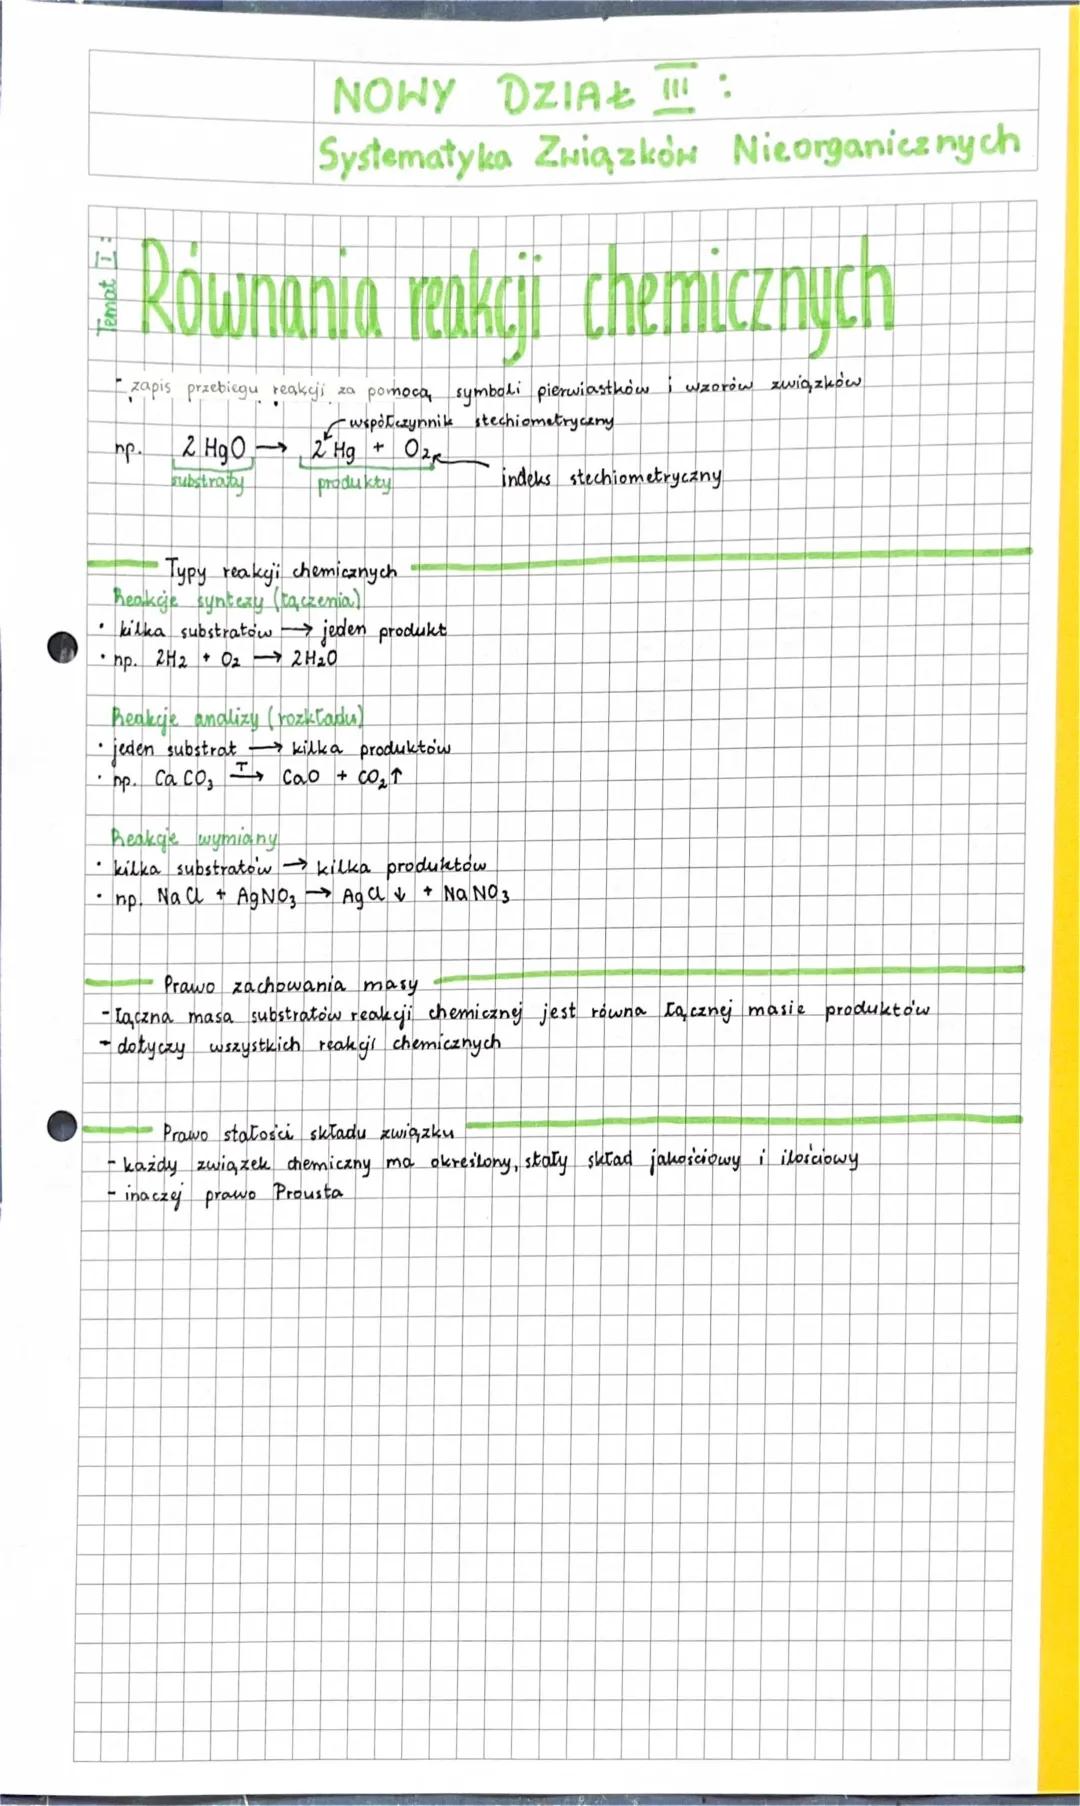 NOWY DZIAŁ III :
Systematyka Związków Nieorganicznych
Temat I:
Równania reakcji chemicznych
- zapis przebiegu reakcji za pomocą symboli pierwiastków i wzorów związków
współczynnik stechiometryczny
np. 2 HgO → 2 Hg + O₂
substraty produkty indeks stechiometryczny
Typy reakcji chemicznych
Reakcje syntezy (łączenia)
• kilka substratów → jeden produkt
• np. 2H₂ + O₂ → 2H₂O
Reakcje analizy (rozkładu)
• jeden substrat → kilka produktów
• np. CaCO₃ T→ CaO + CO₂↑
Reakcje wymiany
• kilka substratów → kilka produktów
• np. NaCl + AgNO₃ → AgCl ↓ + NaNO₃
Prawo zachowania masy
- łączna masa substratów reakcji chemicznej jest równa łącznej masie produktów
- dotyczy wszystkich reakcji chemicznych
Prawo stałości składu związku
- każdy związek chemiczny ma określony, stały skład jakościowy i ilościowy
- inaczej prawo Prousta